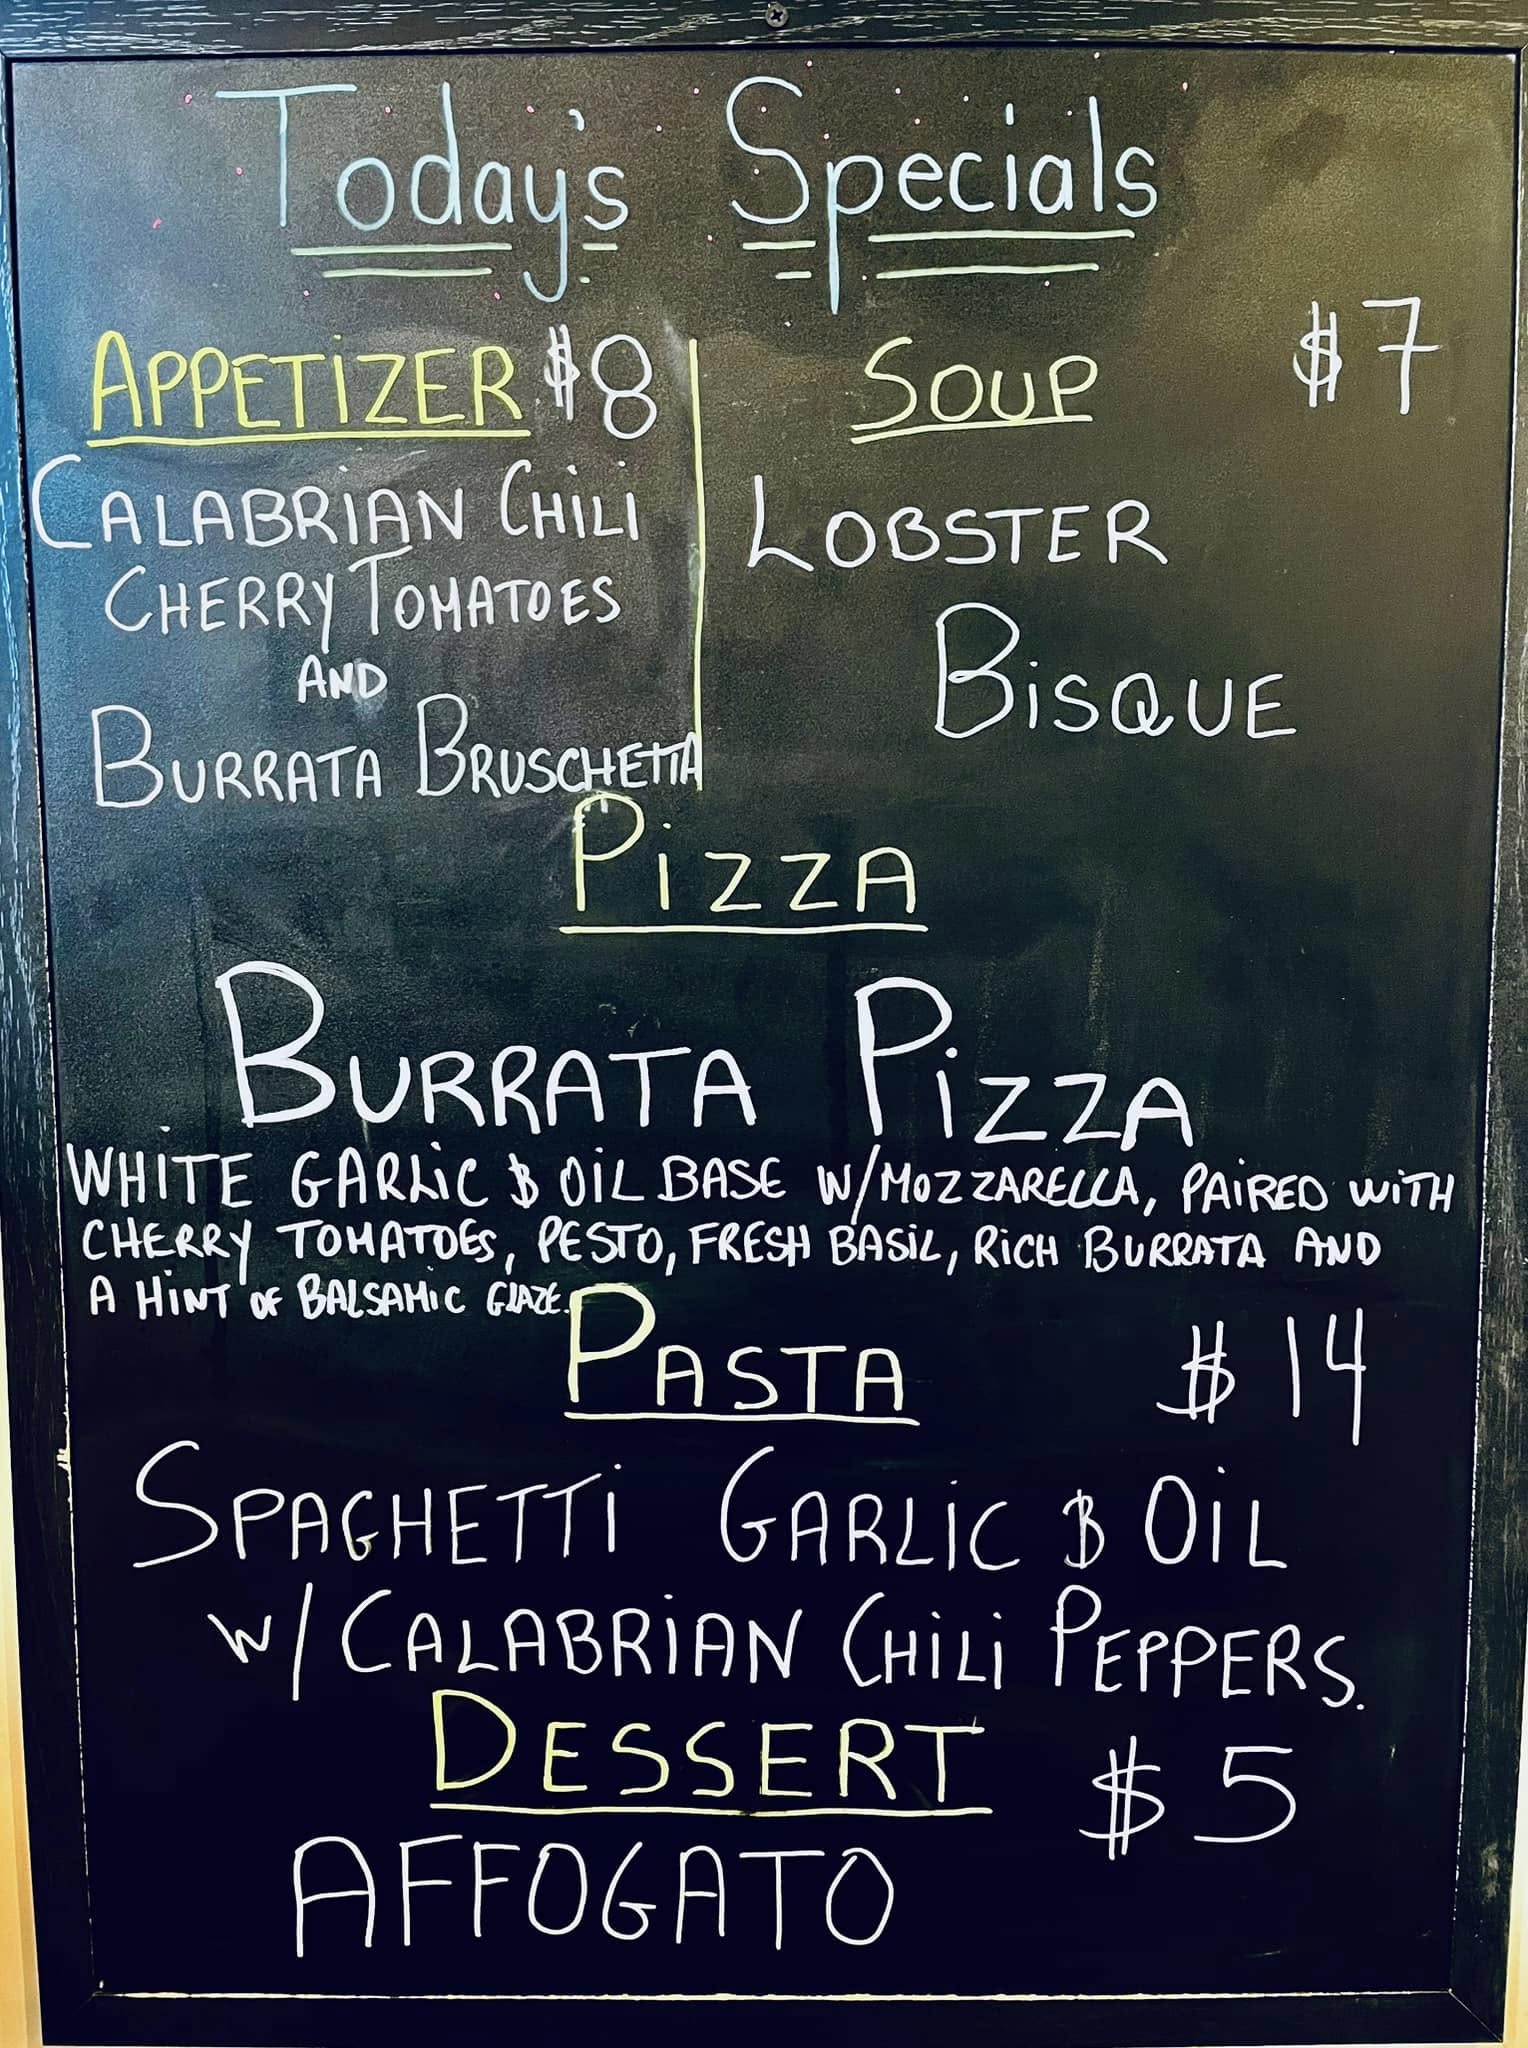 Today's Specials
APPETIZER $8
CALABRIAN CHILI
CHERRY TOMATOES
AND
BURRATA BRUSCHETTA
SOUP $7
LOBSTER
BISQUE
PIZZA
BURRATA PIZZA
WHITE GARLIC & OIL BASE W/MOZZARELLA, PAIRED WITH
CHERRY TOMATOES, PESTO, FRESH BASIL, RICH BURRATA AND
A HINT OF BALSAMIC GLAZE.
PASTA $14
SPAGHETTI GARLIC & OIL
W/CALABRIAN CHILI PEPPERS.
DESSERT $5
AFFOGATO